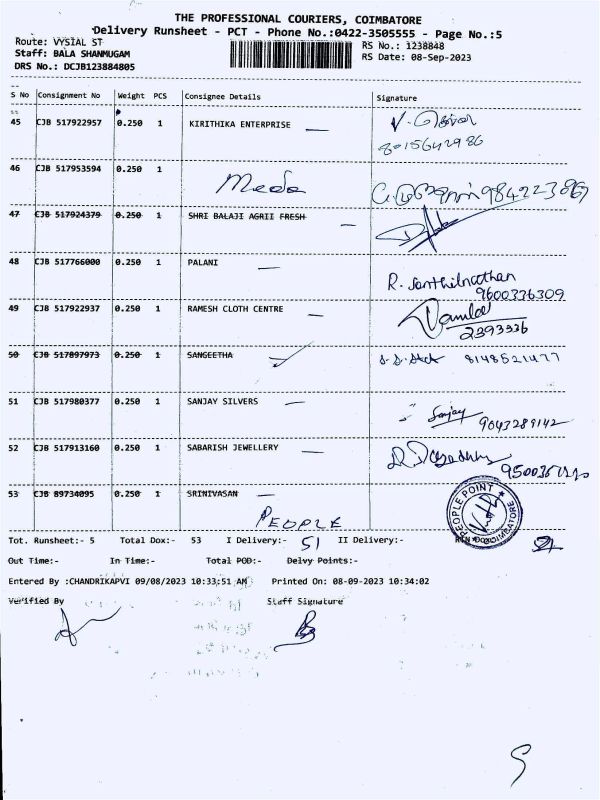 THE PROFESSIONAL COURIERS, COIMBATORE
Delivery Runsheet - PCT - Phone No.:0422-3505555 - Page No.:5
Route: VYSIAL ST
RS No.: 1238848
Staff: BALA SHANMUGAM
RS Date: 08-Sep-2023
DRS No.: DCJB123884805
S No Consignment No Weight PCS Consignee Details Signature
45 CJB 517922957 0.250 1 KIRITHIKA ENTERPRISE
8015642986
46 CJB 517953594 0.250 1
47 CJB 517924379 0.250 1 SHRI BALAJI AGRII FRESH
48 CJB 517766000 0.250 1 PALANI
R. Santhilnathan
9600336309
49 CJB 517922937 0.250 1 RAMESH CLOTH CENTRE
2393336
50 CJB 517897973 0.250 1 SANGEETHA 8148521477
51 CJB 517980377 0.250 1 SANJAY SILVERS Sanjay
9043289142
52 CJB 517913160 0.250 1 SABARISH JEWELLERY
53 CJB 89734095 0.250 1 SRINIVASAN
PEOPLE
PEOPLE POINT COIMBATORE
Tot. Runsheet:- 5 Total Dox:- 53 I Delivery:- 51 II Delivery:-
Out Time:- In Time:- Total POD:- Delvy Points:-
Entered By :CHANDRIKAPVI 09/08/2023 10:33:51 AM Printed On: 08-09-2023 10:34:02
Verified By Staff Signature